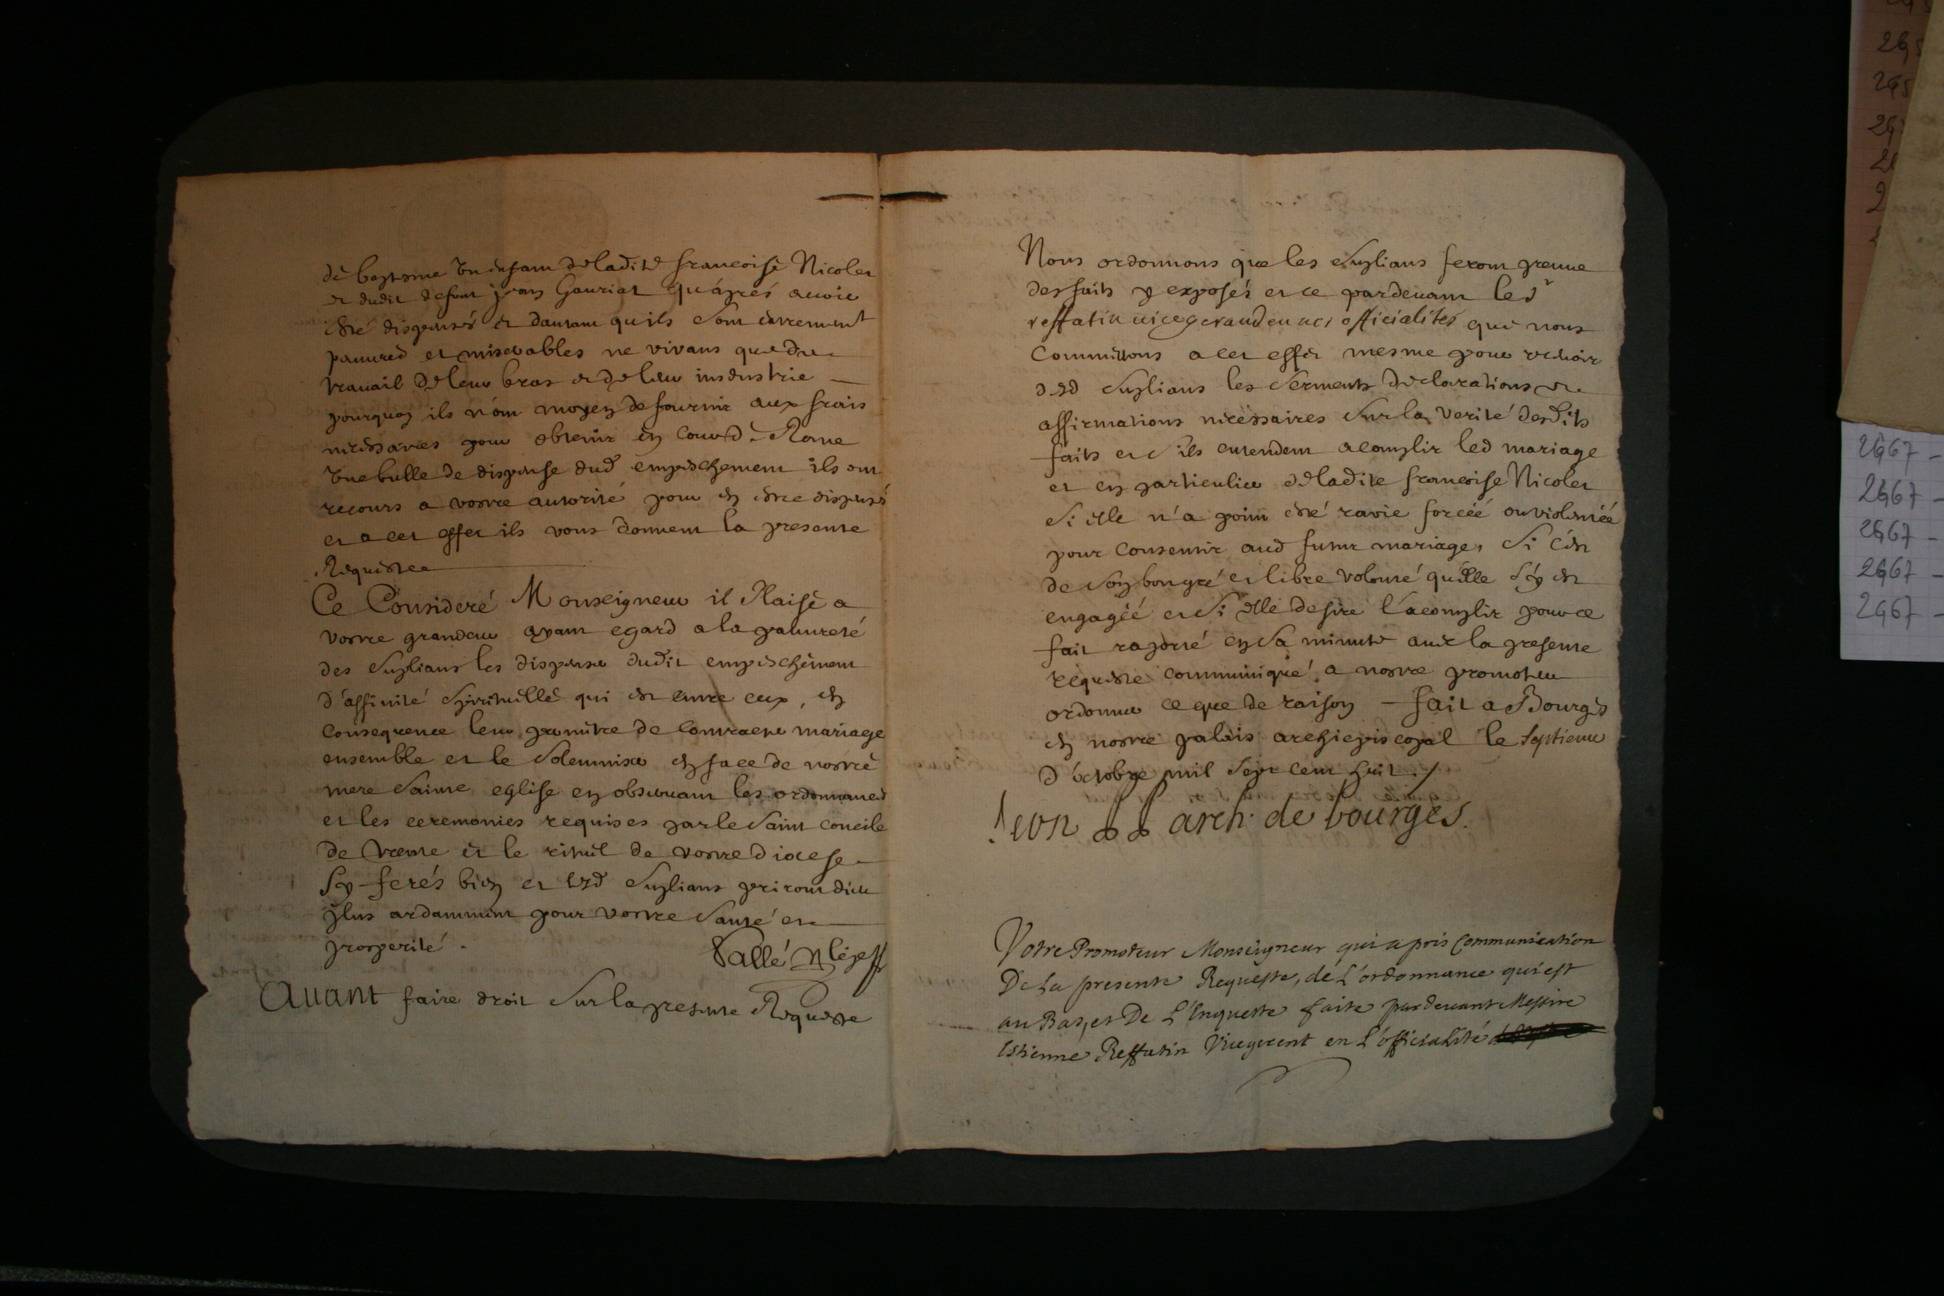 de baptesme Un enfant de ladite francoise Nicolet
et dudit defunt jean Gauriat qu'áprés avoir
esté dispensés et dautant qu'ils sont űrement
pauvres et miserables ne vivans que du
travail de leur bras et de leur industrie
pourquoy ils n'ont moyen de fournir aux frais
necessaires pour obtenir en cour de Rome
Une bulle de dispense dud empeschement ils ont
recours a vostre autorité pour en estre dispensés
et a cet effet ils vous donnent la presente
Requeste
Ce Consideré Monseigneur il Plaise a
vostre grandeur ayant egard a la pauvreté
des suplians les dispenser dudit empeschement
d'affinité spirituelle qui est entre eux, en
consequence leur permettre de contracter mariage
ensemble et le solemniser en face de nostre
mere sainte eglise en observant les ordonnances
et les ceremonies requises par le saint concile
de trente et le rituel de vostre diocese
sy ferés bien et lesd suplians prieront dieu
plus ardamment pour vostre santé et
prosperité .
Vallé
Avant faire droit sur la presente Requeste
Nous ordonnons que les suplians feront preuve
des faits y exposés et ce pardevant le sr
reffatin vicegerand en nos officialités que nous
Committons a cet effet mesme pour recevoir
desd suplians les serments declarations et
affirmations nécéssaires sur la verité desdits
faits et s'ils entendent acomplir led mariage
et en particulier de ladite francoise Nicolet
si elle n'a point esté ravie forcéé ou violentéé
pour consentir aud futur mariage, si c'est
de son bon gré et libre volonté qu'elle s'y est
engagéé et si elle desire l'acomplir pour ce
fait raporté en sa minute avec la presente
requeste communiqué a nostre promoteur
ordonner ce que de raison - fait a Bourges
en nostre palais archiepiscopal le septieme
d'octobre mil sept cent huit ./
leon arch. de bourges.
Votre Promoteur Monseigneur qui a pris Communication
De La presente Requeste, de L'ordonnance qui est
au Bas, et De L'Enqueste faite pardevant Messire
Estienne Reffatin Vicegerent en L'officialité
2967 -
2967 -
2967 -
2967 -
2967 -